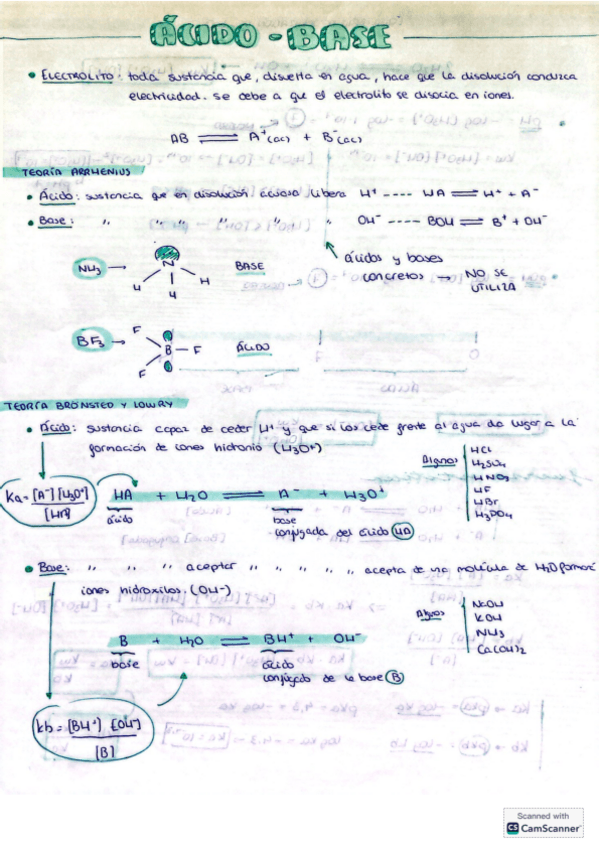 ÁCIDO - BASE
• ELECTROLITO: toda sustancia que, disuelta en agua, hace que la disolución conduzca
electricidad. Se debe a que el electrolito se disocia en iones.
AB ⇌ A⁺(ac) + B⁻(ac)
TEORÍA ARRHENIUS
• Ácido: sustancia que en disolución acuosa, libera H⁺ ---- HA ⇌ H⁺ + A⁻
• Base: " " " " " " OH⁻ ---- BOH ⇌ B⁺ + OH⁻
ácidos y bases
concretos → NO SE
UTILIZA
NH₃ → N H H H BASE
BF₃ → F B F F ÁCIDO
TEORÍA BRÖNSTED Y LOWRY
• Ácido: sustancia capaz de ceder H⁺ y que si los cede frente al agua da lugar a la
formación de iones hidronio (H₃O⁺)
Algunos
HCl
H₂SO₄
HNO₃
HF
HBr
H₃PO₄
Ka = [A⁻][H₃O⁺]
[HA]
HA + H₂O ⇌ A⁻ + H₃O⁺
ácido base
conjugada del ácido HA
• Base: " " " aceptar " " " " " acepta de una molécula de H₂O
iones hidroxilos. (OH⁻)
NaOH
KOH
NH₃
Ca(OH)₂
B + H₂O ⇌ BH⁺ + OH⁻
base ácido
conjugado de la base B
kb = [BH⁺] [OH⁻]
[B]
Scanned with
CS CamScanner